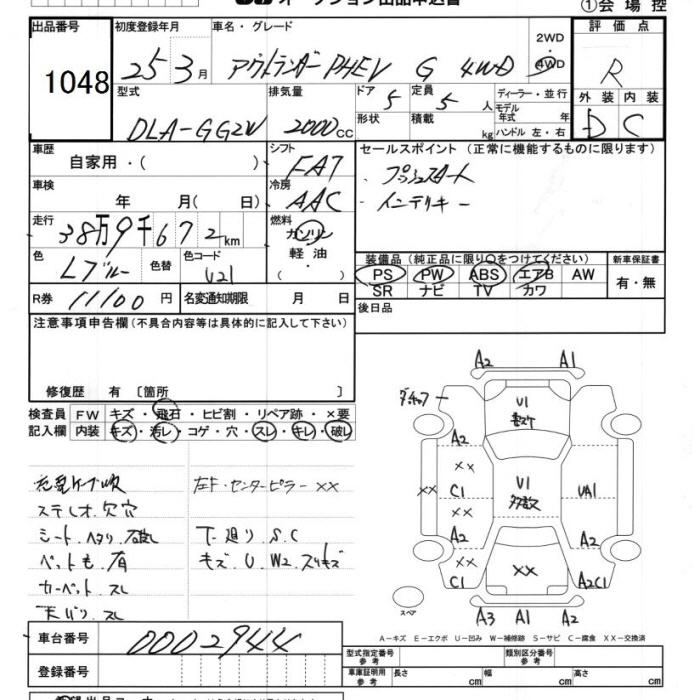 オークション出品申込書
①会場控
出品番号 1048
初度登録年月 25 3月
車名・グレード アウトランダーPHEV G 4WD
2WD
4WD
評価点 R
外装 D 内装 C
型式 DLA-GG2W
排気量 2000cc
ドア 5
形状
定員 5人
積載 kg
ディーラー・並行
モデル年式 年
ハンドル 左・右
車歴 自家用・( )
シフト FA7
車検 年 月( 日)
冷房 AAC
走行 38万9千672km
燃料 ガソリン・軽油・( )
色 Lブルー
色替
色コード U21
R券 11100円
名変通知期限 月 日
セールスポイント(正常に機能するものに限ります)
・プッシュスタート
・インテリキー
装備品(純正品に限り○をつけてください)
新車保証書
PS PW ABS エアB AW
SR ナビ TV カワ
有・無
後日品
注意事項申告欄(不具合内容等は具体的に記入して下さい)
修復歴 有〔箇所 〕
検査員記入欄
FW キズ・飛石・ヒビ割・リペア跡・×要
内装 キズ・汚レ・コゲ・穴・スレ・キレ・破レ
ステレオ、欠穴
シート、ヘタリ、破レ
ペット毛、有
カーペット、スレ
天バリ、スレ
左F・センターピラー ××
下廻り、S、C
キズ、U、W2、スリキズ
A2 A1
U1
A2
××
C1
××
××
A2
××
C1
U1
UA1
A2
A2C1
××
A3 A1 A2
スペア
A-キズ E-エクボ U-凹み W-補修跡 S-サビ C-腐食 XX-交換済
車台番号 0002944
登録番号
型式指定番号 参考
類別区分番号 参考
車庫証明用 参考 長さ cm 幅 cm 高さ cm